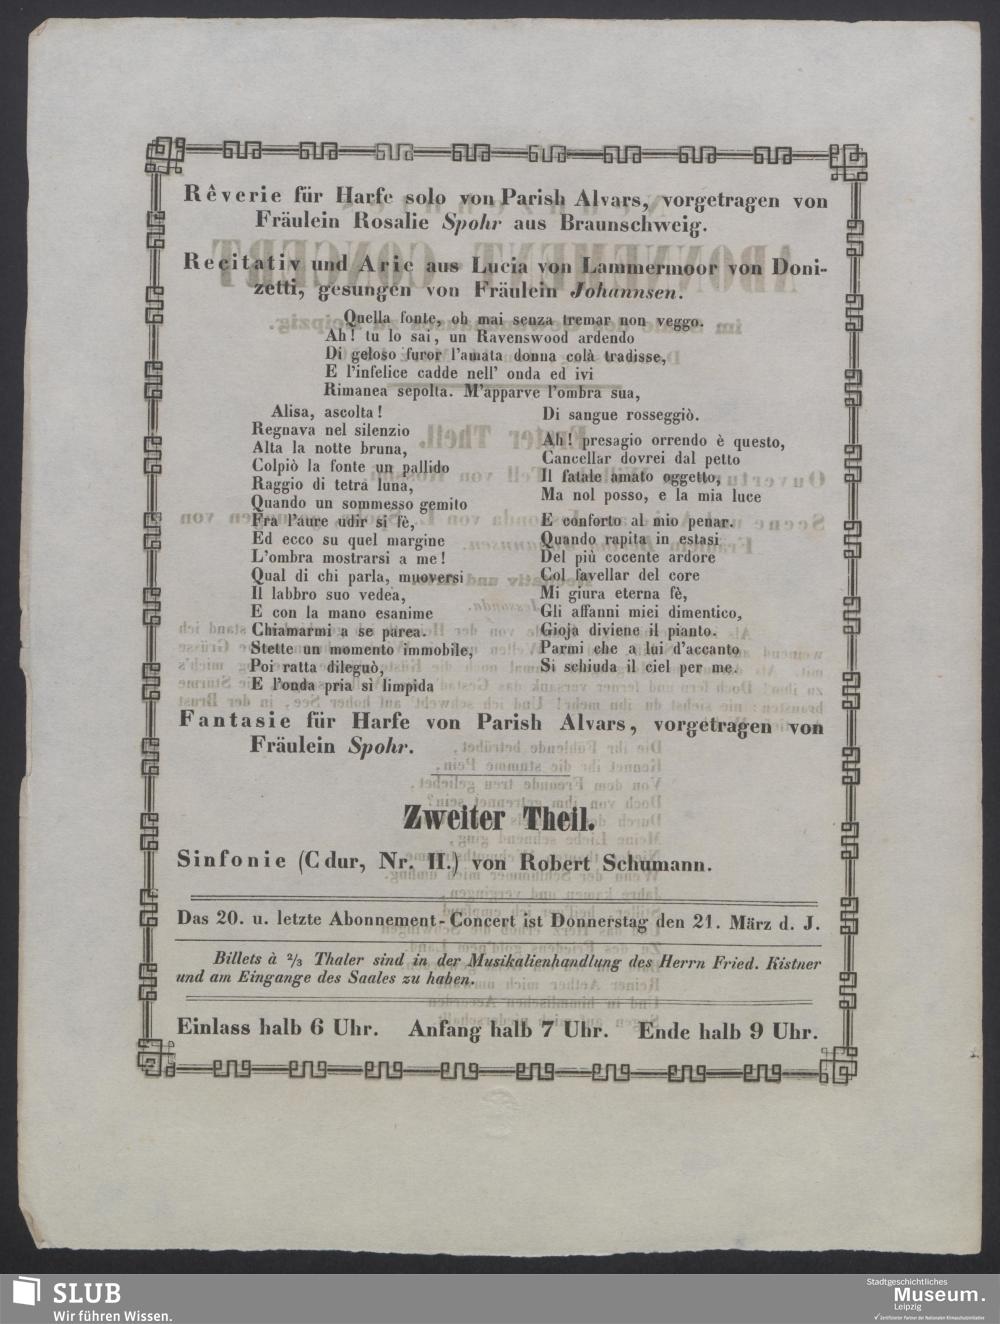 Rêverie für Harfe solo von Parish Alvars, vorgetragen von
Fräulein Rosalie Spohr aus Braunschweig.
Recitativ und Arie aus Lucia von Lammermoor von Doni-
zetti, gesungen von Fräulein Johannsen.
Quella fonte, oh mai senza tremar non veggo.
Ah! tu lo sai, un Ravenswood ardendo
Di geloso furor l'amata donna colà tradisse,
E l'infelice cadde nell' onda ed ivi
Rimanea sepolta. M'apparve l'ombra sua,
Alisa, ascolta!
Regnava nel silenzio
Alta la notte bruna,
Colpiò la fonte un pallido
Raggio di tetra luna,
Quando un sommesso gemito
Fra l'aure udir si fè,
Ed ecco su quel margine
L'ombra mostrarsi a me!
Qual di chi parla, muoversi
Il labbro suo vedea,
E con la mano esanime
Chiamarmi a se parea.
Stette un momento immobile,
Poi ratta dileguò,
E l'onda pria sì limpida
Di sangue rosseggiò.
Ah! presagio orrendo è questo,
Cancellar dovrei dal petto
Il fatale amato oggetto,
Ma nol posso, e la mia luce
E conforto al mio penar.
Quando rapita in estasi
Del più cocente ardore
Col favellar del core
Mi giura eterna fè,
Gli affanni miei dimentico,
Gioja diviene il pianto.
Parmi che a lui d'accanto
Si schiuda il ciel per me.
Fantasie für Harfe von Parish Alvars, vorgetragen von
Fräulein Spohr.
Zweiter Theil.
Sinfonie (C dur, Nr. II.) von Robert Schumann.
Das 20. u. letzte Abonnement-Concert ist Donnerstag den 21. März d. J.
Billets à 2/3 Thaler sind in der Musikalienhandlung des Herrn Fried. Kistner
und am Eingange des Saales zu haben.
Einlass halb 6 Uhr. Anfang halb 7 Uhr. Ende halb 9 Uhr.
SLUB
Wir führen Wissen.
Stadtgeschichtliches
Museum.
Leipzig
Zertifizierter Partner der Nationalen Klimaschutzinitiative